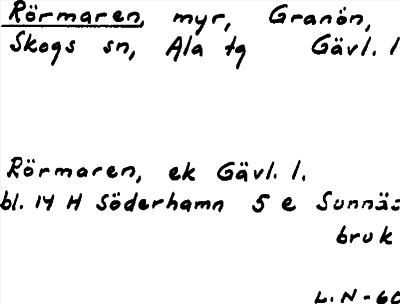 Rörmaren, myr, Granön,
Skogs sn, Ala tg Gävl. l
Rörmaren, ek Gävl. l.
bl. 14 H Söderhamn 5 e Sunnäs
bruk
L.N-60